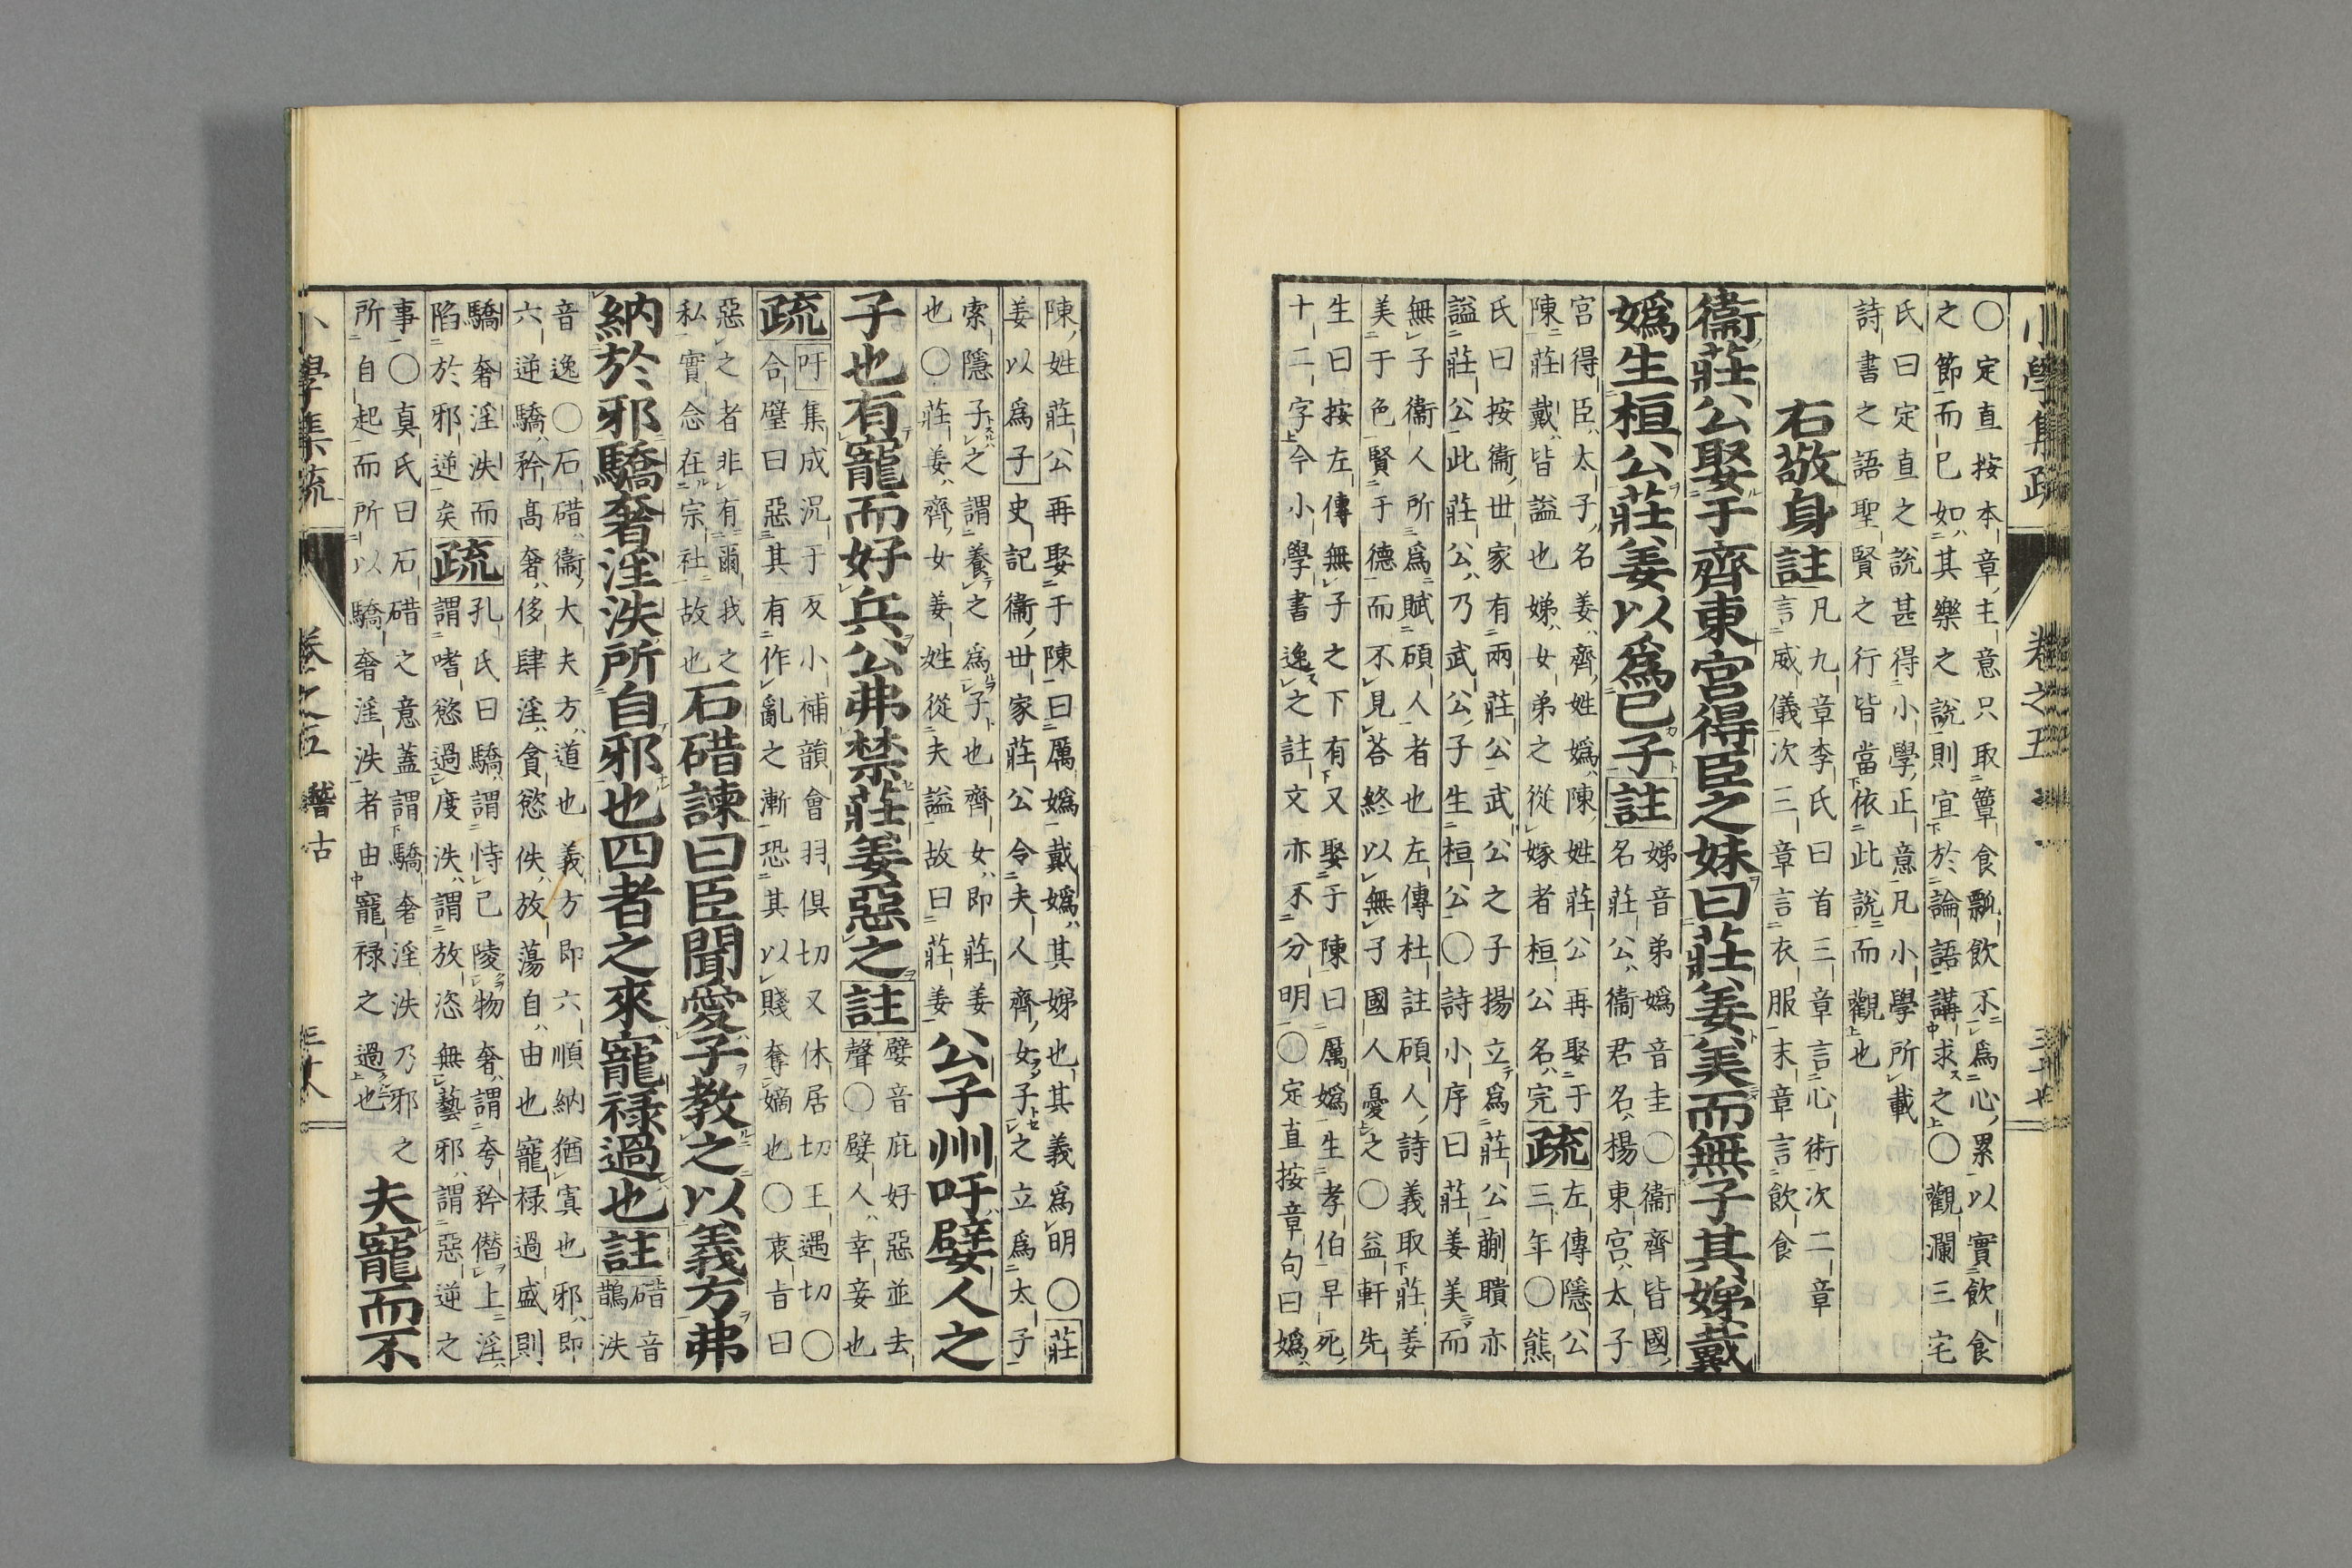 小學集疏 卷之五
○定直按本章主意只取簞食瓢飮不爲心累以實飮食
之節而已如其樂之說則宜於論語講求之○觀瀾三宅
氏曰定直之說甚得小學正意凡小學所載
詩書之語聖賢之行皆當依此說而觀也
右敬身註凡九章李氏曰首三章言心術次二章
言威儀次三章言衣服末章言飮食
衞莊公娶于齊東宮得臣之妹曰莊姜美而無子其娣戴
嬀生桓公莊姜以爲己子註娣音弟嬀音圭○衞齊皆國
名莊公衞君名揚東宮太子
宮得臣太子名姜齊姓嬀陳姓莊公再娶于
陳莊戴皆謚也娣女弟之從嫁者桓公名完疏左傳隱公
三年○熊
氏曰按衞世家有兩莊公武公之子揚立爲莊公蒯聵亦
謚莊公此莊公乃武公子生桓公○詩小序曰莊姜美而
無子衞人所爲賦碩人者也左傳杜註碩人詩義取莊姜
美于色賢于德而不見荅終以無子國人憂之○益軒先
生曰按左傳無子之下有又娶于陳曰厲嬀生孝伯早死
十二字今小學書逸之註文亦不分明○定直按章句曰嬀
陳姓莊公再娶于陳曰厲嬀戴嬀其娣也其義爲明○莊
姜以爲子史記衞世家莊公令夫人齊女子之立爲太子
索隱子之謂養之爲子也齊女即莊姜
也○莊姜齊女姜姓從夫謚故曰莊姜公子州吁嬖人之
子也有寵而好兵公弗禁莊姜惡之註嬖音庇好惡並去
聲○嬖人幸妾也
疏吁集成況于反小補韻會羽倶切又休居切王遇切○
合璧曰惡其有作亂之漸恐其以賤奪嫡也○衷旨曰
惡之者非有爾我之
私實念在宗社故也石碏諫曰臣聞愛子敎之以義方弗
納於邪驕奢淫泆所自邪也四者之來寵祿過也註碏音
鵲泆
音逸○石碏衞大夫方道也義方即六順納猶寘也邪即
六逆驕矜高奢侈肆淫貪慾佚放蕩自由也寵祿過盛則
驕奢淫泆而
陷於邪逆矣疏孔氏曰驕謂恃己陵物奢謂夸矜僭上淫
謂嗜慾過度泆謂放恣無藝邪謂惡逆之
事○眞氏曰石碏之意蓋謂驕奢淫泆乃邪之
所自起而所以驕奢淫泆者由寵祿之過也夫寵而不
小學集疏 卷之五 稽古